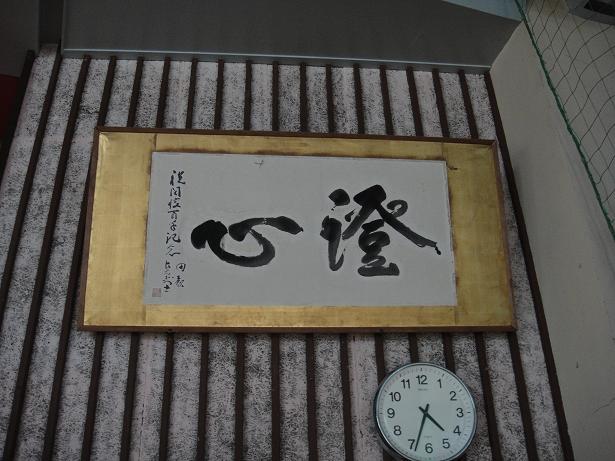 澄心
祝開校百年記念
12
1
2
3
4
5
6
7
8
9
10
11